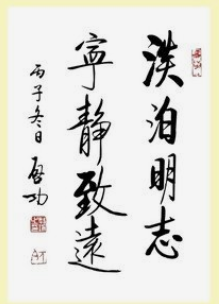 淡泊明志
寧靜致遠
丙子冬日 启功